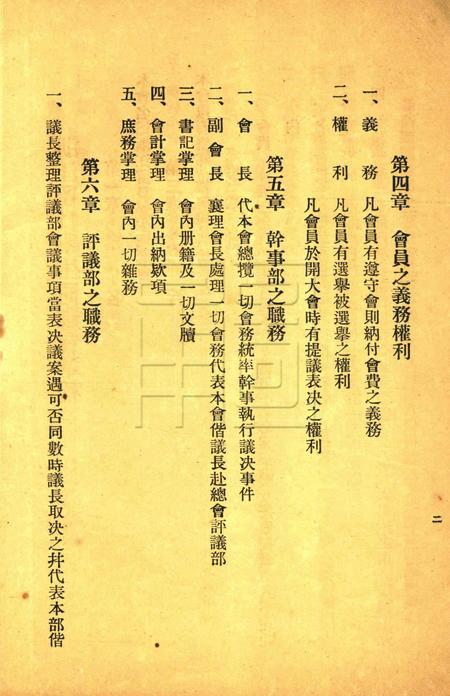 二
第四章　會員之義務權利
一、義　務　凡會員有遵守會則納付會費之義務
二、權　利　凡會員有選舉被選舉之權利
凡會員於開大會時有提議表決之權利
第五章　幹事部之職務
一、會　長　代本會總攬一切會務統率幹事執行議決事件
二、副會長　襄理會長處理一切會務代表本會偕議長赴總會評議部
三、書記掌理　會內册籍及一切文牘
四、會計掌理　會內出納欵項
五、庶務掌理　會內一切雜務
第六章　評議部之職務
一、議長整理評議部會議事項當表決議案遇可否同數時議長取決之幷代表本部偕